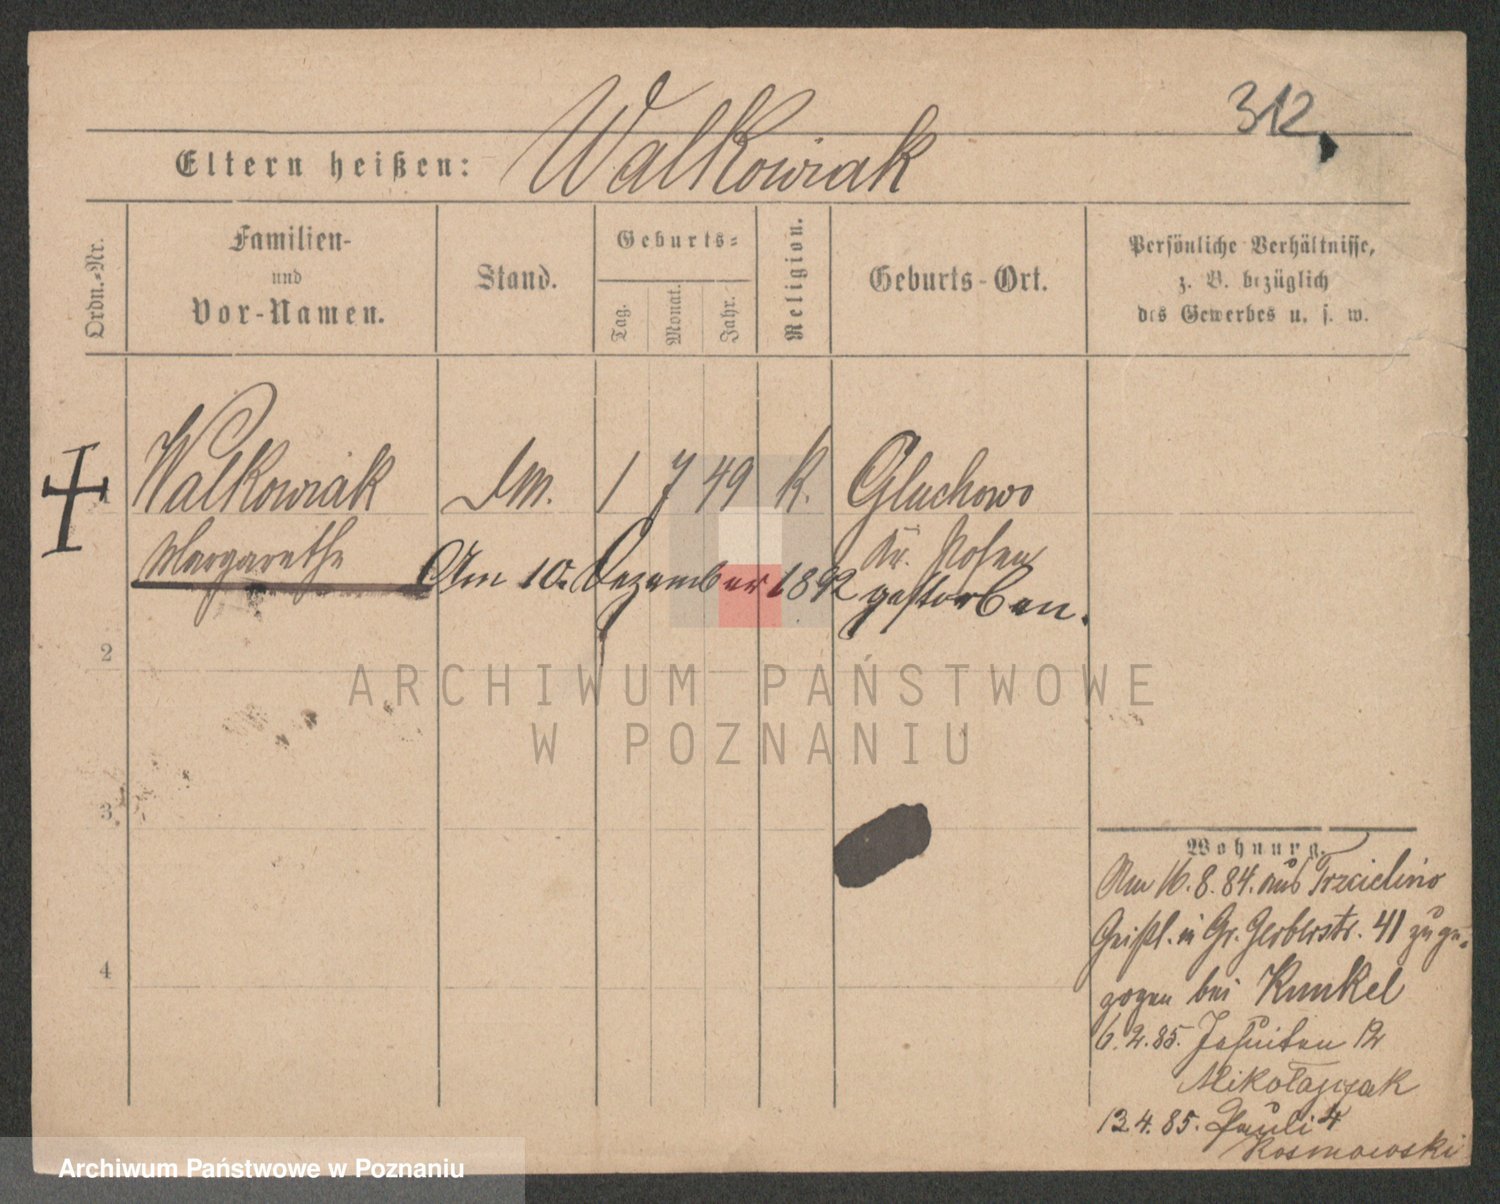 312
Eltern heißen: Walkowiak
Ordn.-Nr.
Familien-
und
Vor-Namen.
Stand.
Geburts-
Tag.
Monat.
Jahr.
Religion.
Geburts-Ort.
Persönliche Verhältnisse,
z. B. bezüglich
des Gewerbes u. s. w.
1 Walkowiak 1 7 49 K. Gluchowo
Margarethe Kr. Posen
Am 10. Dezember 1892 gestorben.
2
3
4
ARCHIWUM PAŃSTWOWE
W POZNANIU
Wohnung.
Am 16.8.84. aus Trzcielino
in Gr. Gerberstr. 41 zuge-
zogen bei Kunkel
6.2.85. Jesuiten 12
Mikołajczak
13.4.85. Pauli 4
Kosmowski
Archiwum Państwowe w Poznaniu